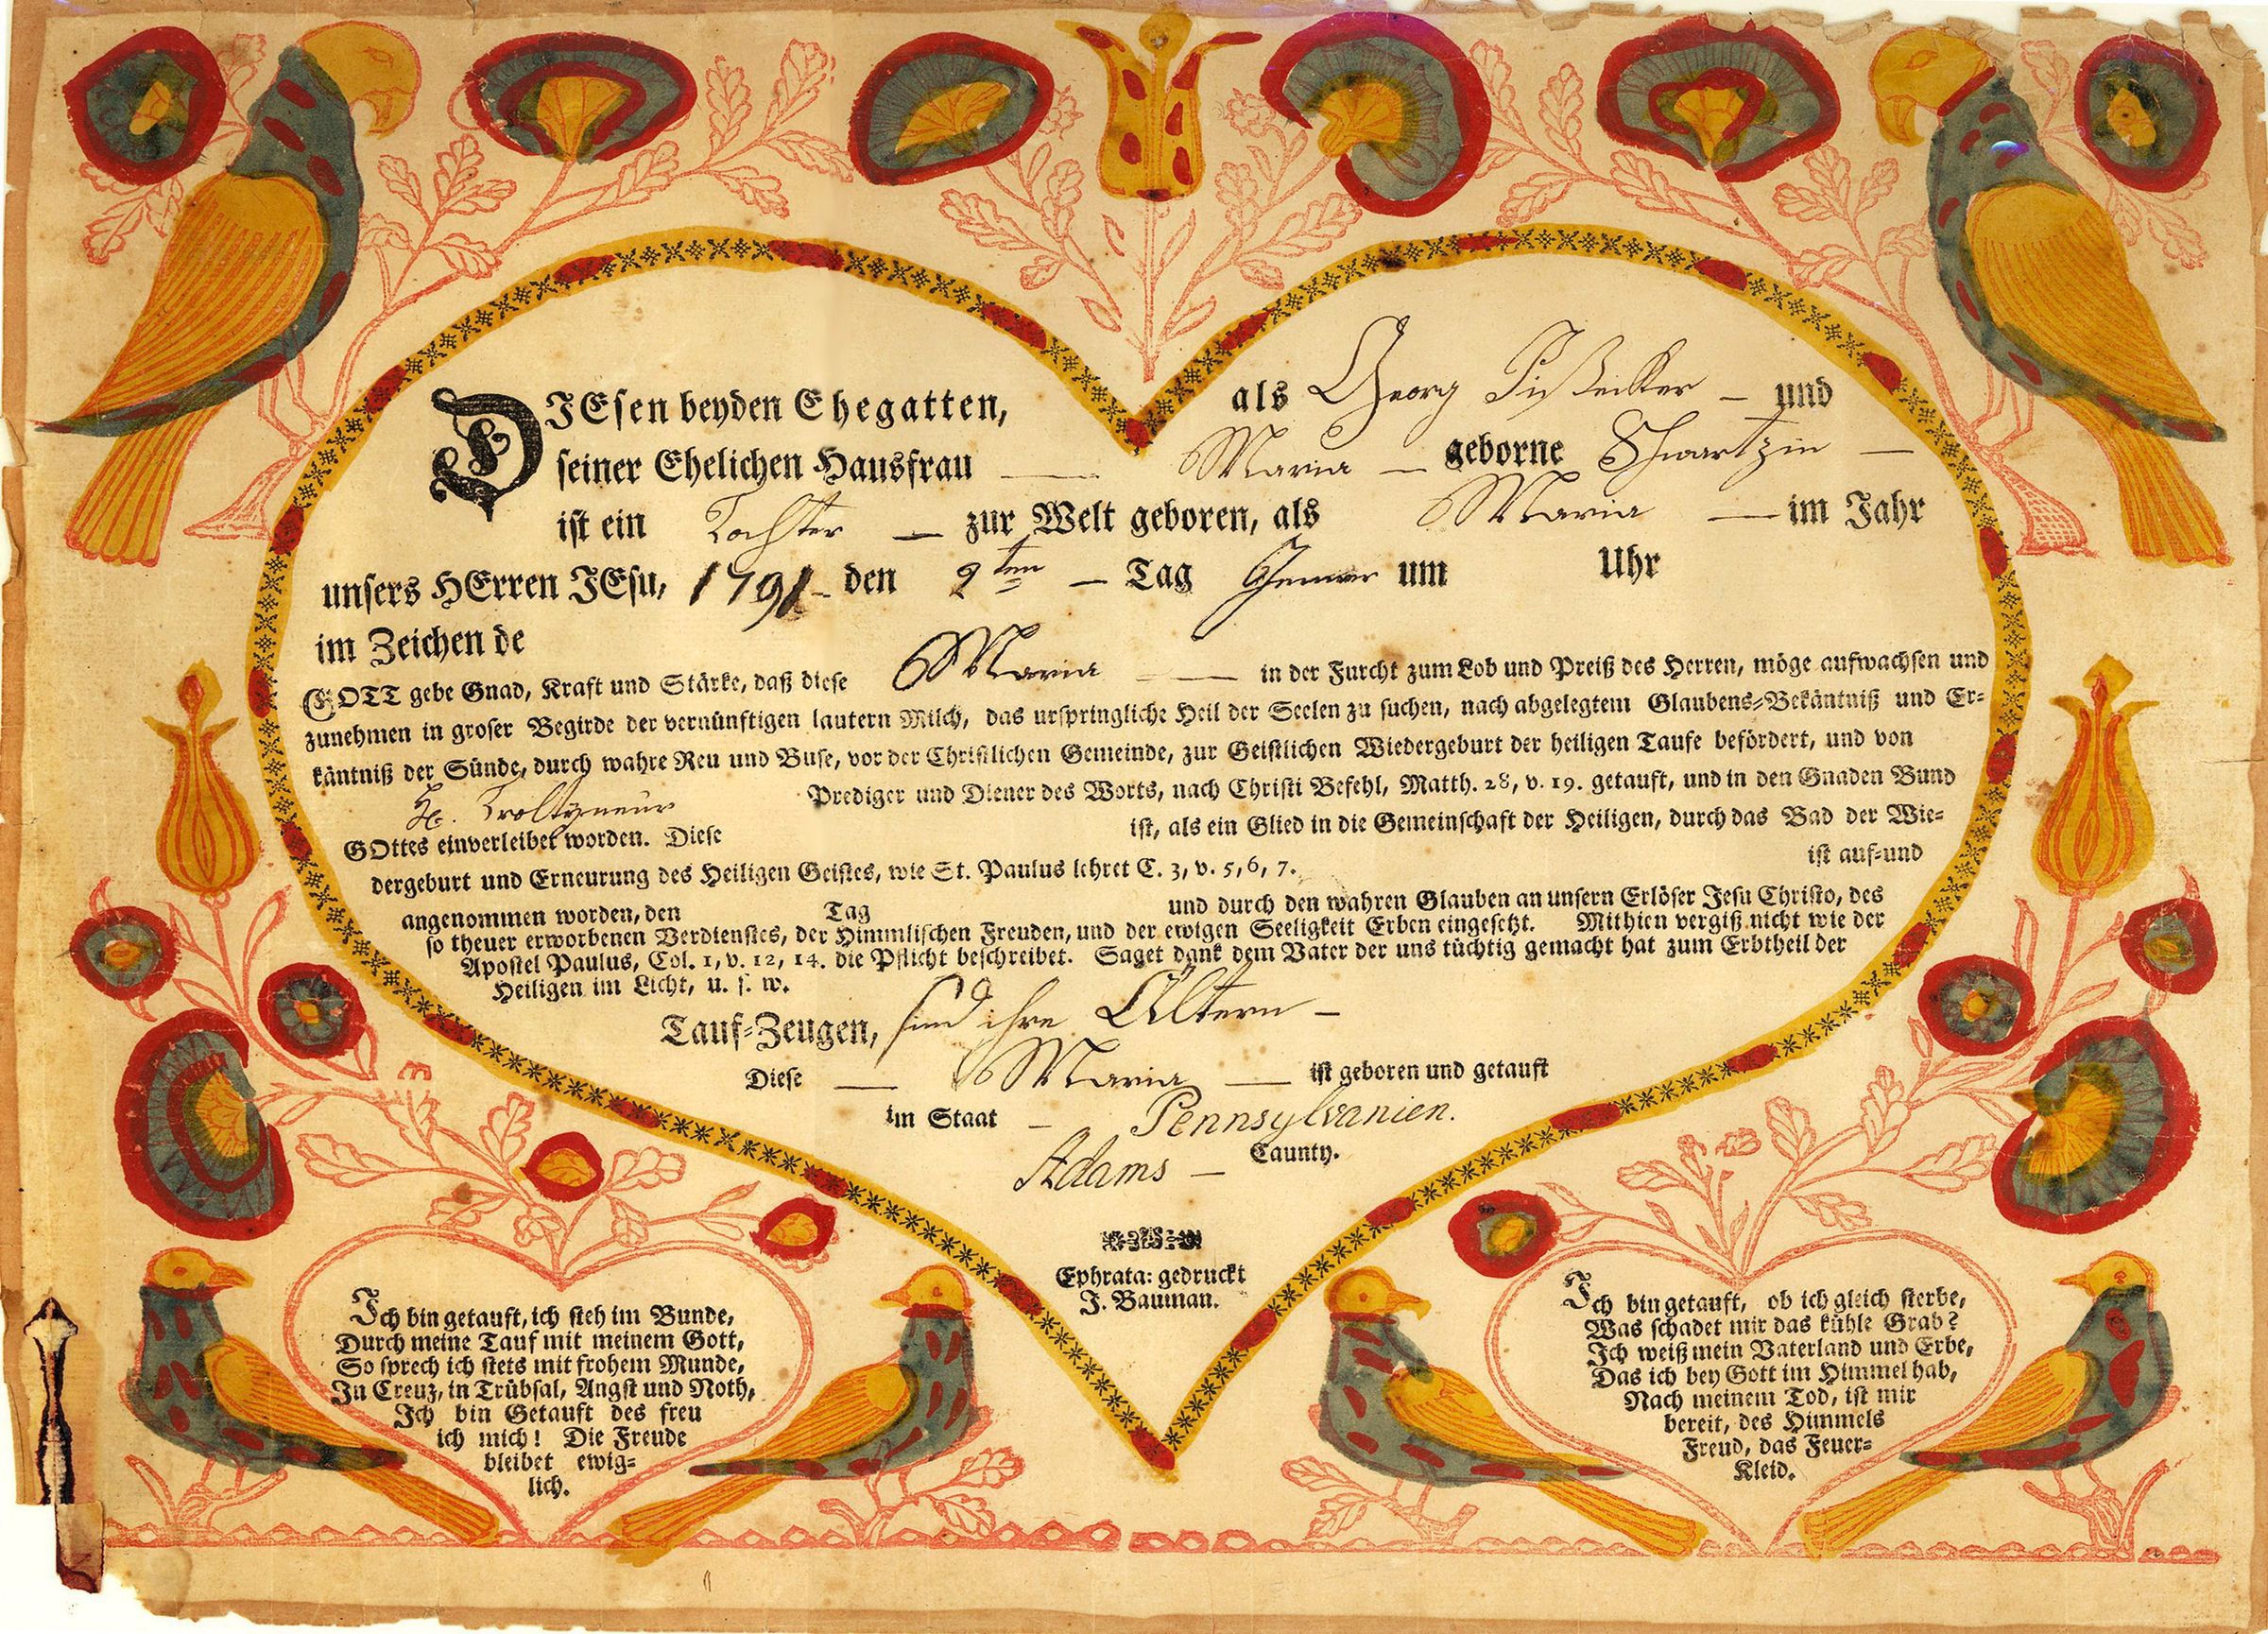 DIEsen beyden Ehegatten, als Georg
und
seiner Ehelichen Hausfrau — Maria — geborne Schwartzin —
ist ein Tochter — zur Welt geboren, als Maria — im Jahr
unsers HErren JEsu, 1791 - den 9ten — Tag Genner um Uhr
im Zeichen de
GOTT gebe Gnad, Kraft und Stärke, daß diese Maria — in der Furcht zum Lob und Preiß des Herren, möge aufwachsen und
zunehmen in groser Begirde der vernünftigen lautern Milch, das urspringliche Heil der Seelen zu suchen, nach abgelegtem Glaubens-Bekäntniß und Er-
käntniß der Sünde, durch wahre Reu und Buse, vor der Christlichen Gemeinde, zur Geistlichen Wiedergeburt der heiligen Taufe befördert, und von
Prediger und Diener des Worts, nach Christi Befehl, Matth. 28, v. 19. getauft, und in den Gnaden Bund
GOttes einverleibet worden. Diese ist, als ein Glied in die Gemeinschaft der Heiligen, durch das Bad der Wie-
dergeburt und Erneurung des Heiligen Geistes, wie St. Paulus lehret C. 3, v. 5, 6, 7. ist auf-und
angenommen worden, den Tag und durch den wahren Glauben an unsern Erlöser Jesu Christo, des
so theuer erworbenen Verdienstes, der Himmlischen Freuden, und der ewigen Seeligkeit Erben eingesetzt. Mithien vergiß nicht wie der
Apostel Paulus, Col. 1, v. 12, 14. die Pflicht beschreibet. Saget dank dem Vater der uns tüchtig gemacht hat zum Erbtheil der
Heiligen im Licht, u. s. w.
Tauf-Zeugen, sind ihre Ältern —
Diese — Maria — ist geboren und getauft
im Staat — Pennsylvanien.
Adams — Caunty.
Ephrata: gedruckt
J. Bauman.
Ich bin getauft, ich steh im Bunde,
Durch meine Tauf mit meinem Gott,
So sprech ich stets mit frohem Munde,
In Creuz, in Trübsal, Angst und Noth,
Ich bin Getauft des freu
ich mich! Die Freude
bleibet ewig-
lich.
Ich bin getauft, ob ich gleich sterbe,
Was schadet mir das kühle Grab?
Ich weiß mein Vaterland und Erbe,
Das ich bey Gott im Himmel hab,
Nach meinem Tod, ist mir
bereit, des Himmels
Freud, das Feuer-
Kleid.